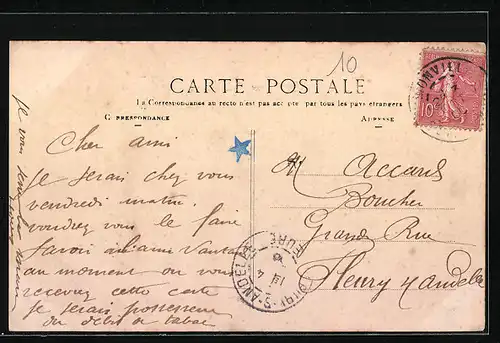 10
CARTE POSTALE
La Correspondance au recto n'est pas acceptée par tous les pays étrangers
CORRESPONDANCE
ADRESSE
Cher ami
Je serais chez vous
vendredi matin.
voudrez vous le faire
savoir à l'ami
au moment ou vous
recevrez cette carte
je serais possesseur
du débit de tabac
Je vous serre la
M Accard
Boucher
Grande Rue
Fleury s/ Andelle
10
FLEURY-S-ANDELLE
EURE